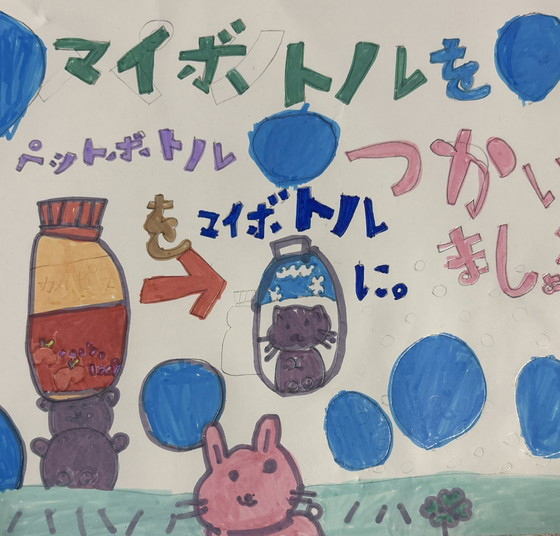 マイボトルを
つかい
ましょ
ペットボトル
を
マイボトル
に。